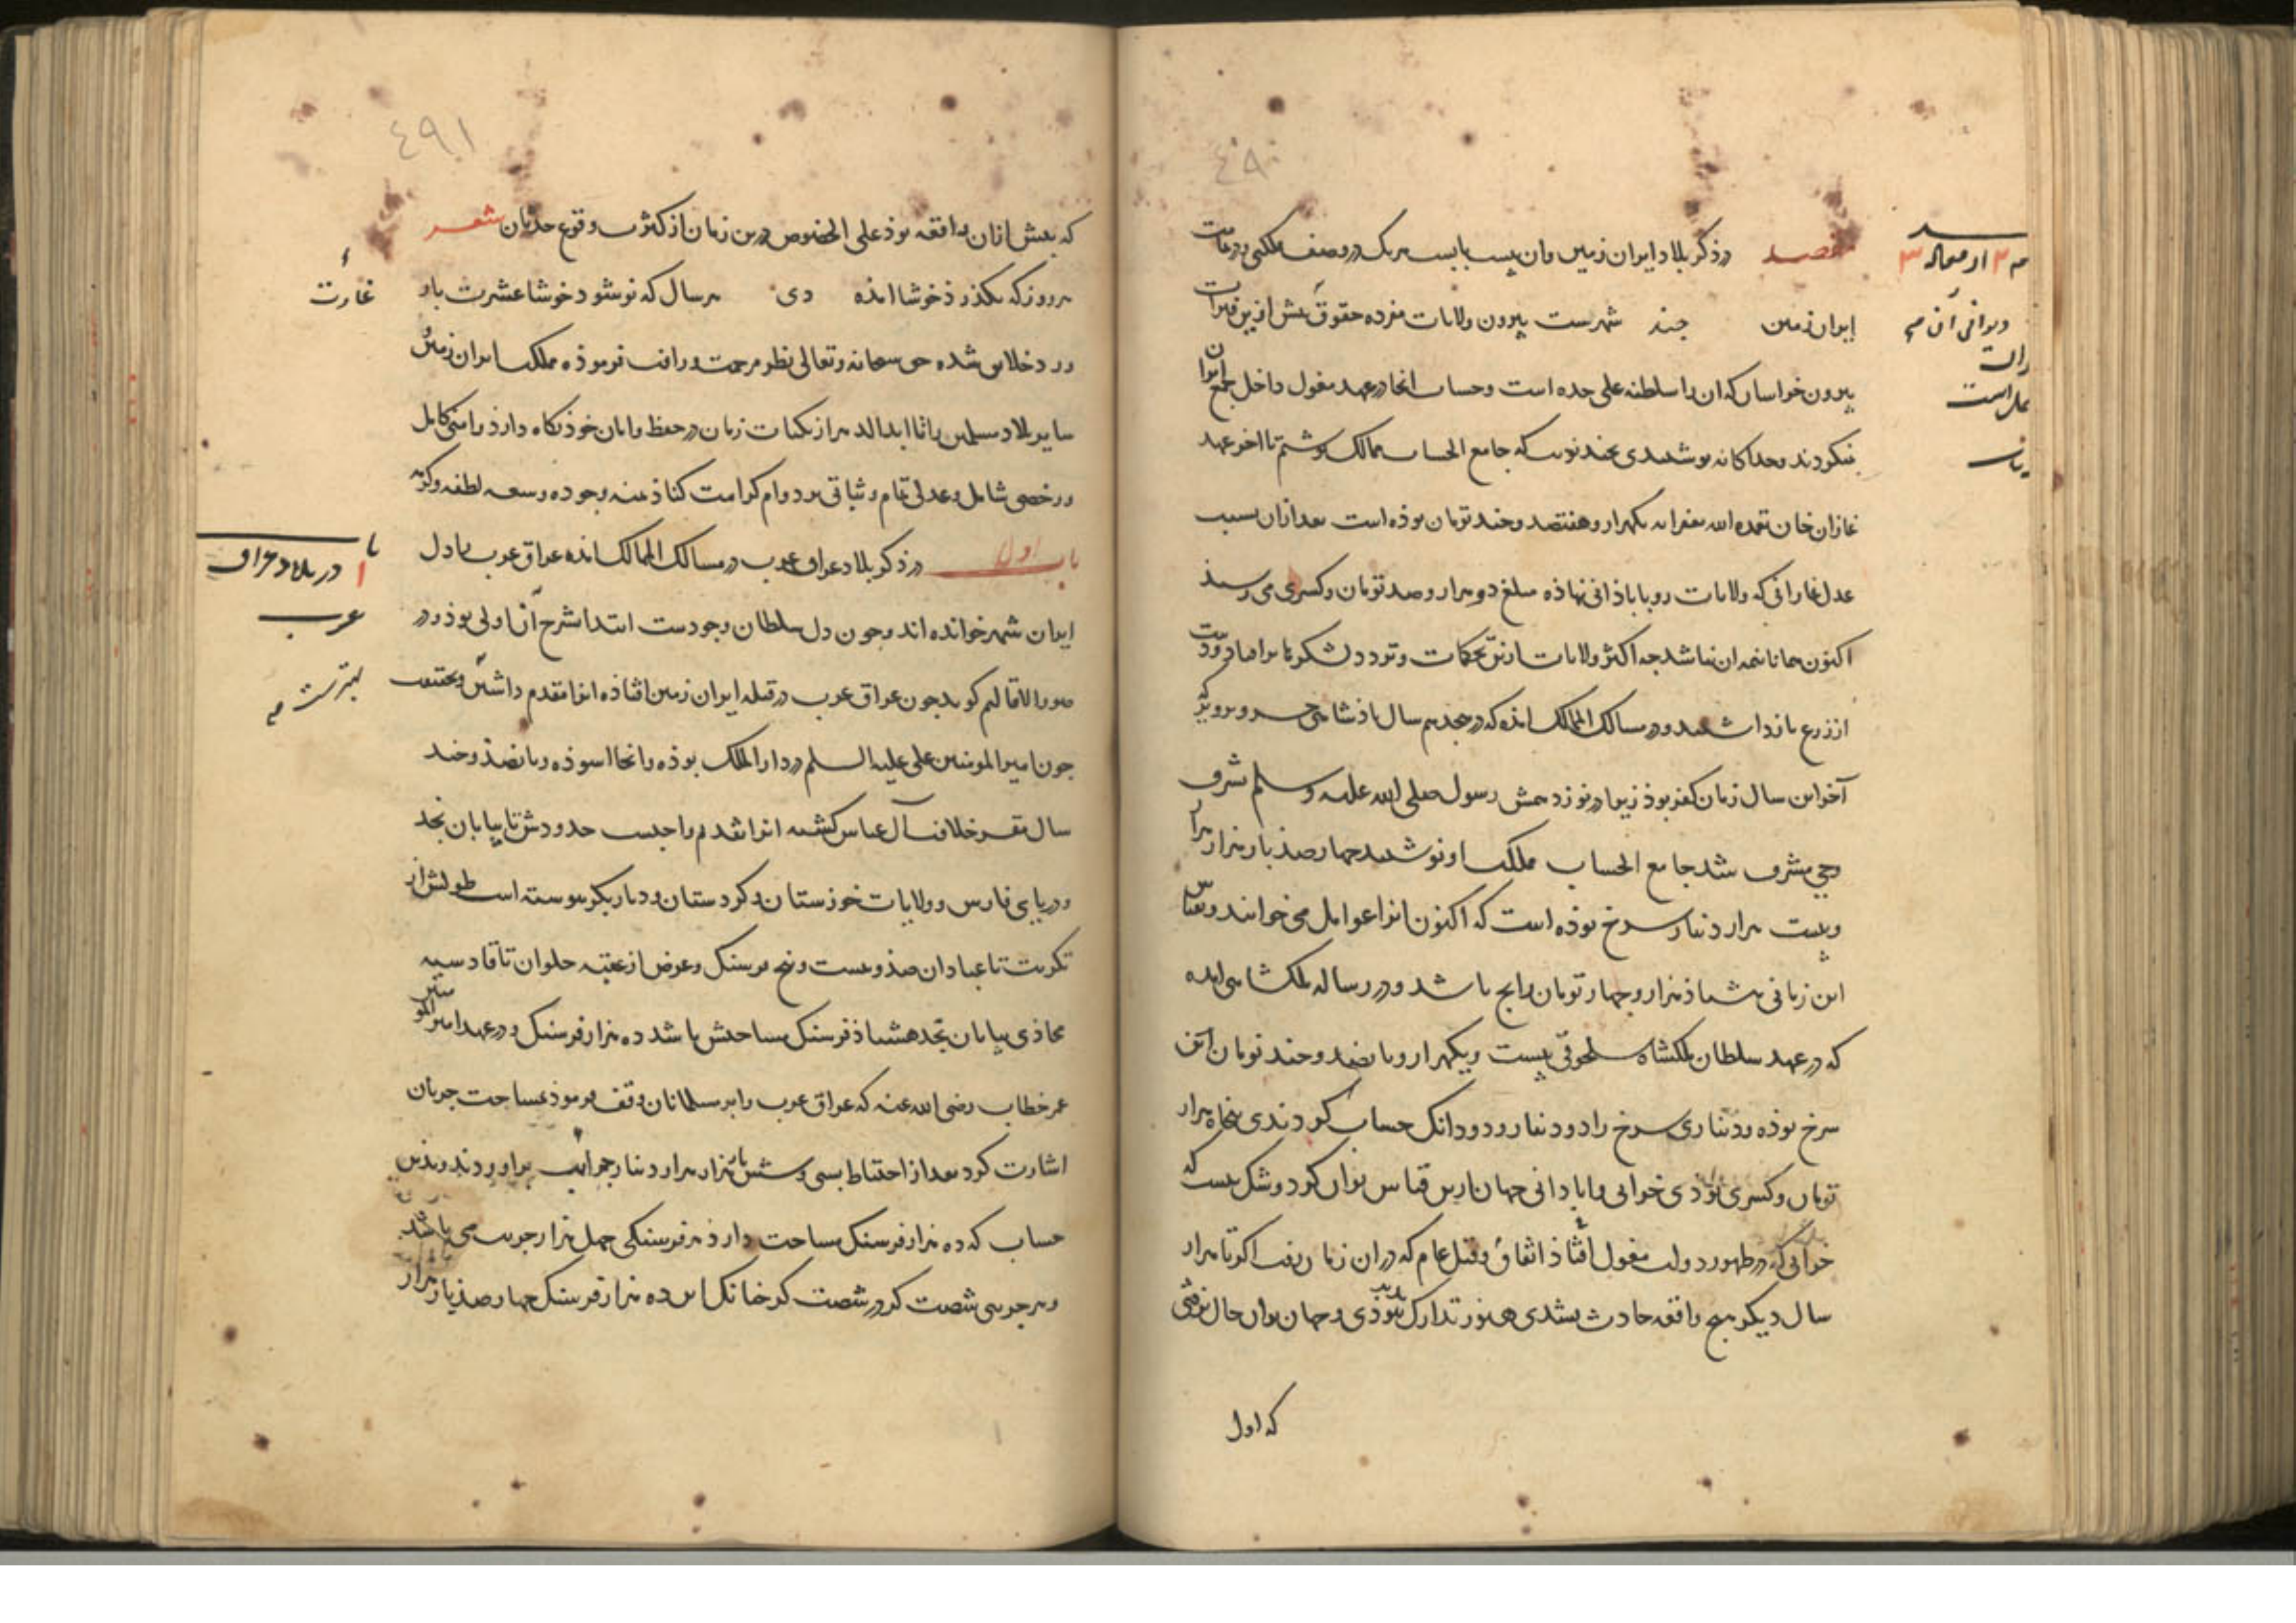 ٤٩٠
مقصد در ذکر بلاد ایران زمین وان بیست بابست هر یک در وصف ملکی ودرعامت
ایران زمین چند شهرست بیرون ولایات مفرده حقوق بیش ازین
بیرون خراسان که ان را سلطنه علی حده است وحساب انجا در عهد مغول داخل جمع ایران
نمیکردند وجداکانه نوشتندی بچند نوبت که جامع الحساب ممالک نوشتم تا اخر عهد
غازان خان تغمده الله بغفرانه یکهزار وهفتصد وچند تومان بوذه است بعد ازان بسبب
عدل غازانی که ولایات روی باباذانی نهاذه مبلغ دو هزار وصد تومان وکسری می رسیذ
اکنون همانا نیمه ان نباشد چه اکثر ولایات ازین تحکمات وتردد لشکرها
از زرع بازداشتند ودر مسالک الممالک امذه که در هجدهم سال باذشاهی خسرو پرویز که
آخر این سال زمان کفر بوذ زیرا در نوزدهمش رسول صلی الله علیه وسلم بشرف
وحی مشرف شد جامع الحساب مملکت او نوشتند چهارصذ بار هزار هزار
وبیست هزار دینار سرخ بوذه است که اکنون انرا عوامل می خوانند وبقیاس
این زمانی هشتاذ هزار وچهار تومان رایج باشد ودر رساله ملکشاهی امده
که در عهد سلطان ملکشاه سلجوقی بیست ویکهزار وپانصد وچند تومان زر
سرخ بوذه ودیناری سرخ را دو دینار ودو دانک حساب کردندی پنجاه هزار
تومان وکسری بوذی خرابی واباذانی جهان ازین قیاس توان کرد وشک نیست که
خرابی که در ظهور دولت مغول افتاذ اتفاق وقتل عام که دران زمان رفت اکر تا هزار
سال دیکر هیچ واقعه حادث نشدی هنوز تدارک پذیر نبوذی وجهان بدان حال نرفتی
که اول
دیوانی آن
٤٩١
که بیش ازان واقعه بوذ علی الخصوص درین زمان از کثرت وقوع حدثان شعر
هر روز که بکذرد خوشا امذه دی هر سال که نو شود خوشا عشرت پار
حق سبحانه وتعالی نظر مرحمت ورافت فرموذه مملکت ایران زمین
سایر بلاد مسلمین را تا ابدالدهر از نکبات زمان در حفظ وامان خوذ نکاه دارذ وامنی کامل
ورخصی شامل وعدلی تمام وثباتی بر دوام کرامت کناذ بمنه وجوده وسعه لطفه وکرمه
باب اول در ذکر بلاد عراق عرب در مسالک الممالک امذه عراق عرب را دل
ایران شهر خوانده اند وچون دل سلطان وجودست ابتدا بشرح آن اولی بوذ ودر
صور الاقالیم کوید چون عراق عرب در قبله ایران زمین افتاذه انرا مقدم داشتن وبحقیقت
چون امیر المومنین علی علیه السلم در دار الملک بوذه وانجا اسوذه وپانصذ وچند
سال مقر خلافت آل عباس کشته انرا تقدم واجبست حدودش تا بیابان نجد
ودریای فارس وولایات خوزستان وکردستان ودیار بکر پیوسته است طولش از
تکریت تا عبادان صذ وبیست وپنج فرسنک وعرض از عقبه حلوان تا قادسیه
محاذی بیابان نجد هشتاذ فرسنک مساحتش باشد ده هزار فرسنک ودر عهد امیر المومنین
عمر خطاب رضی الله عنه که عراق عرب را بر مسلمانان وقف فرموذ بمساحت جریان
اشارت کرد بعد از احتیاط بسی وشش بار هزار هزار دینار جریب براوردند وبذین
حساب که ده هزار فرسنک مساحت دارذ هر فرسنکی چهل هزار جریب می باشد
وهر جریبی شصت کز در شصت کز خانک این ده هزار فرسنک چهارصذ بار هزار
غارت
در بلاد عراق
عرب